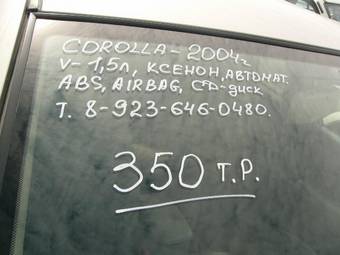 COROLLA - 2004г
V- 1,5л, КСЕНОН, АВТОМАТ.
ABS, AIRBAG, CD-диск
Т. 8-923-646-0480.
350 Т.Р.